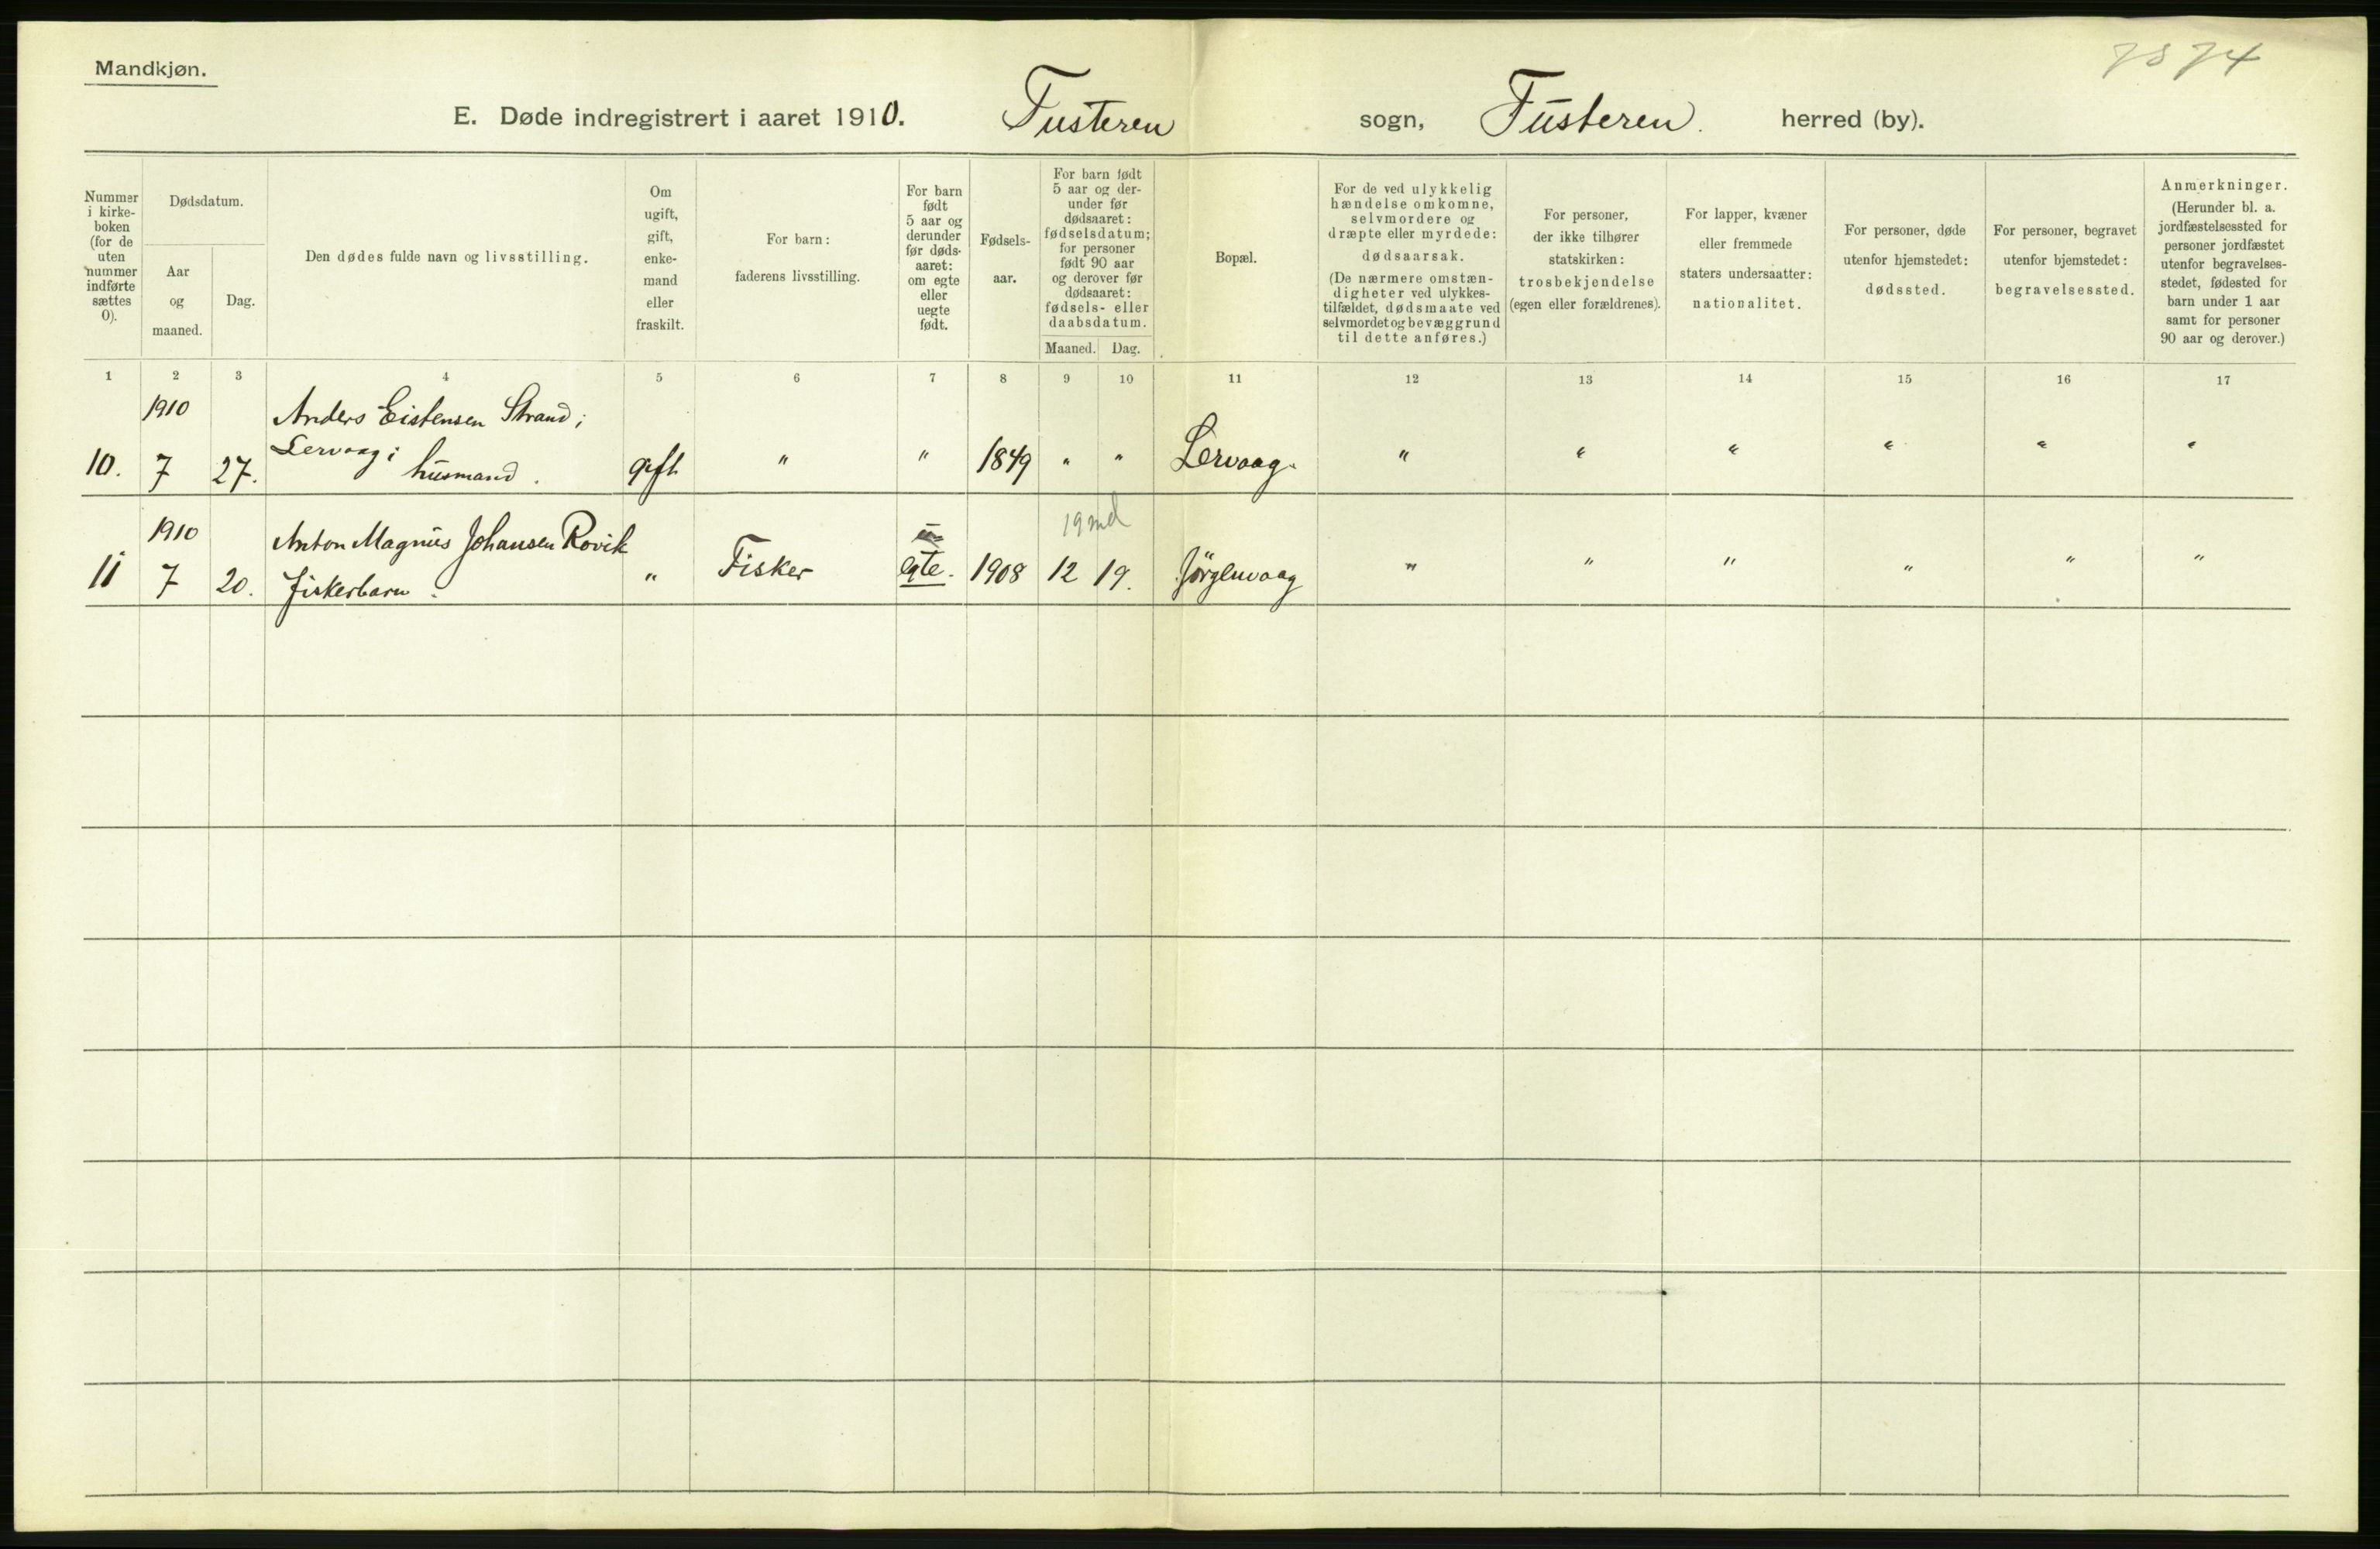 Mandkjøn.
7874
E. Døde indregistrert i aaret 1910. Tusteren sogn, Tusteren. herred (by).
Nummer
i kirke-
boken
(for de
uten
nummer
indførte
sættes
0).
Dødsdatum.
Aar
og
maaned.
Dag.
Den dødes fulde navn og livsstilling.
Om
ugift,
gift,
enke-
mand
eller
fraskilt.
For barn:
faderens livsstilling.
For barn
født
5 aar og
derunder
før døds-
aaret:
om egte
eller
uegte
født.
Fødsels-
aar.
For barn født
5 aar og der-
under før
dødsaaret:
fødselsdatum;
for personer
født 90 aar
og derover før
dødsaaret:
fødsels- eller
daabsdatum.
Maaned. Dag.
Bopæl.
For de ved ulykkelig
hændelse omkomne,
selvmordere og
dræpte eller myrdede:
dødsaarsak.
(De nærmere omstæn-
digheter ved ulykkes-
tilfældet, dødsmaate ved
selvmordet og bevæggrund
til dette anføres.)
For personer,
der ikke tilhører
statskirken:
trosbekjendelse
(egen eller forældrenes).
For lapper, kvæner
eller fremmede
staters undersaatter:
nationalitet.
For personer, døde
utenfor hjemstedet:
dødssted.
For personer, begravet
utenfor hjemstedet:
begravelsessted.
Anmerkninger.
(Herunder bl. a.
jordfæstelsessted for
personer jordfæstet
utenfor begravelses-
stedet, fødested for
barn under 1 aar
samt for personer
90 aar og derover.)
1 2 3 4 5 6 7 8 9 10 11 12 13 14 15 16 17
1910 Anders Eistensen Strand;
Lervaag;
10. 7 27. husmand. gift " " 1849 " " Lervaag. " " " " " "
1910 Anton Magnus Johansen Rovik 19 md
11 7 20. Fiskerbarn. " Fisker egte. 1908 12 19. Jörgenvaag " " " " " "